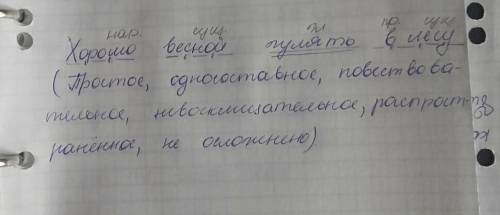 нар. сущ. гл. пр. сущ.
Хорошо весной гулять в лесу
(Простое, односоставное, повествова-
тельное, невосклицательное, распрост-
ранённое, не осложнено)